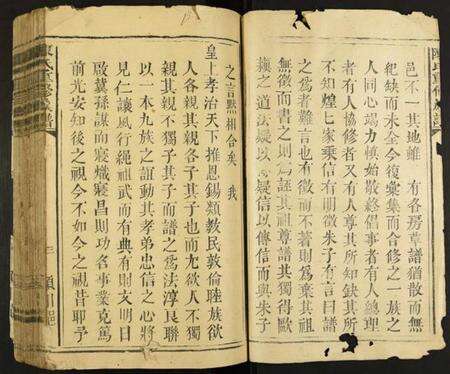 邑不一其地雖　有各房草譜猶散而無
紀缺而未全今復彙集而合修之一族之
人同心竭力慎始敬終倡事者有人總理
者有人協修者又有人尊其所知缺其所
不知煌煌家乘信有明徵朱子有言曰譜
之為者難言也有徵而不著則為棄其祖
無徵而書之則為誣其祖尊譜其獨得歐
蘇之道法疑以傳疑信以傳信而與朱子
之言默相合矣　我
皇上孝治天下推恩錫類教民敦倫睦族欲
人各親其親各子其子也而尤欲人不獨
親其親不獨子其子而譜之為法淳民聯
以一本九族之誼動其孝弟忠信之心將
見仁讓風行繩祖武而有典有則文明日
啟冀孫謀而寢熾寢昌則功名事業克篤
前光安知後之視今不如今之視昔耶予